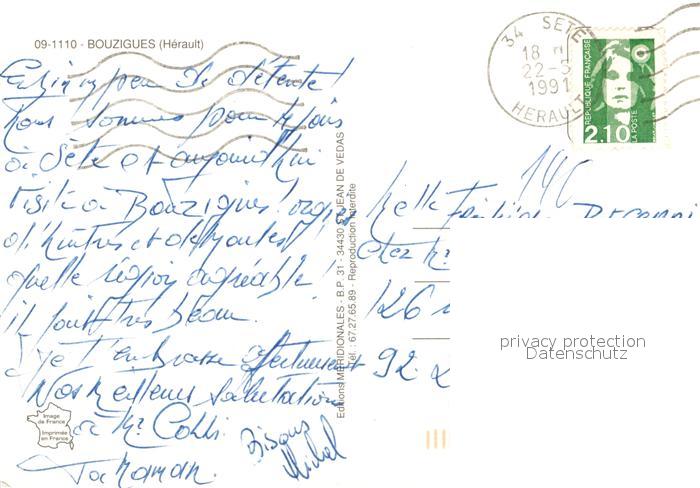 09-1110 - BOUZIGUES (Hérault)
34 SETE
18 H
22-5
1991
HERAULT
REPUBLIQUE FRANÇAISE
2.10
LA POSTE
Enfin un peu de détente !
Nous sommes pour jours
à Sète et aujourd'hui
visite à Bouzigues !
d'huîtres et de moules
quelle région agréable !
il fait très beau.
Je t'embrasse affectueusement
Nos meilleures salutations
à Mr
Ta maman.
Bisous
Michel
Editions MERIDIONALES - B.P. 31 - 34430 ST JEAN DE VEDAS
Tél. : 67.27.65.89 - Reproduction interdite
Melle
chez Mr
126
92
Image de France
Imprimée en France
privacy protection
Datenschutz